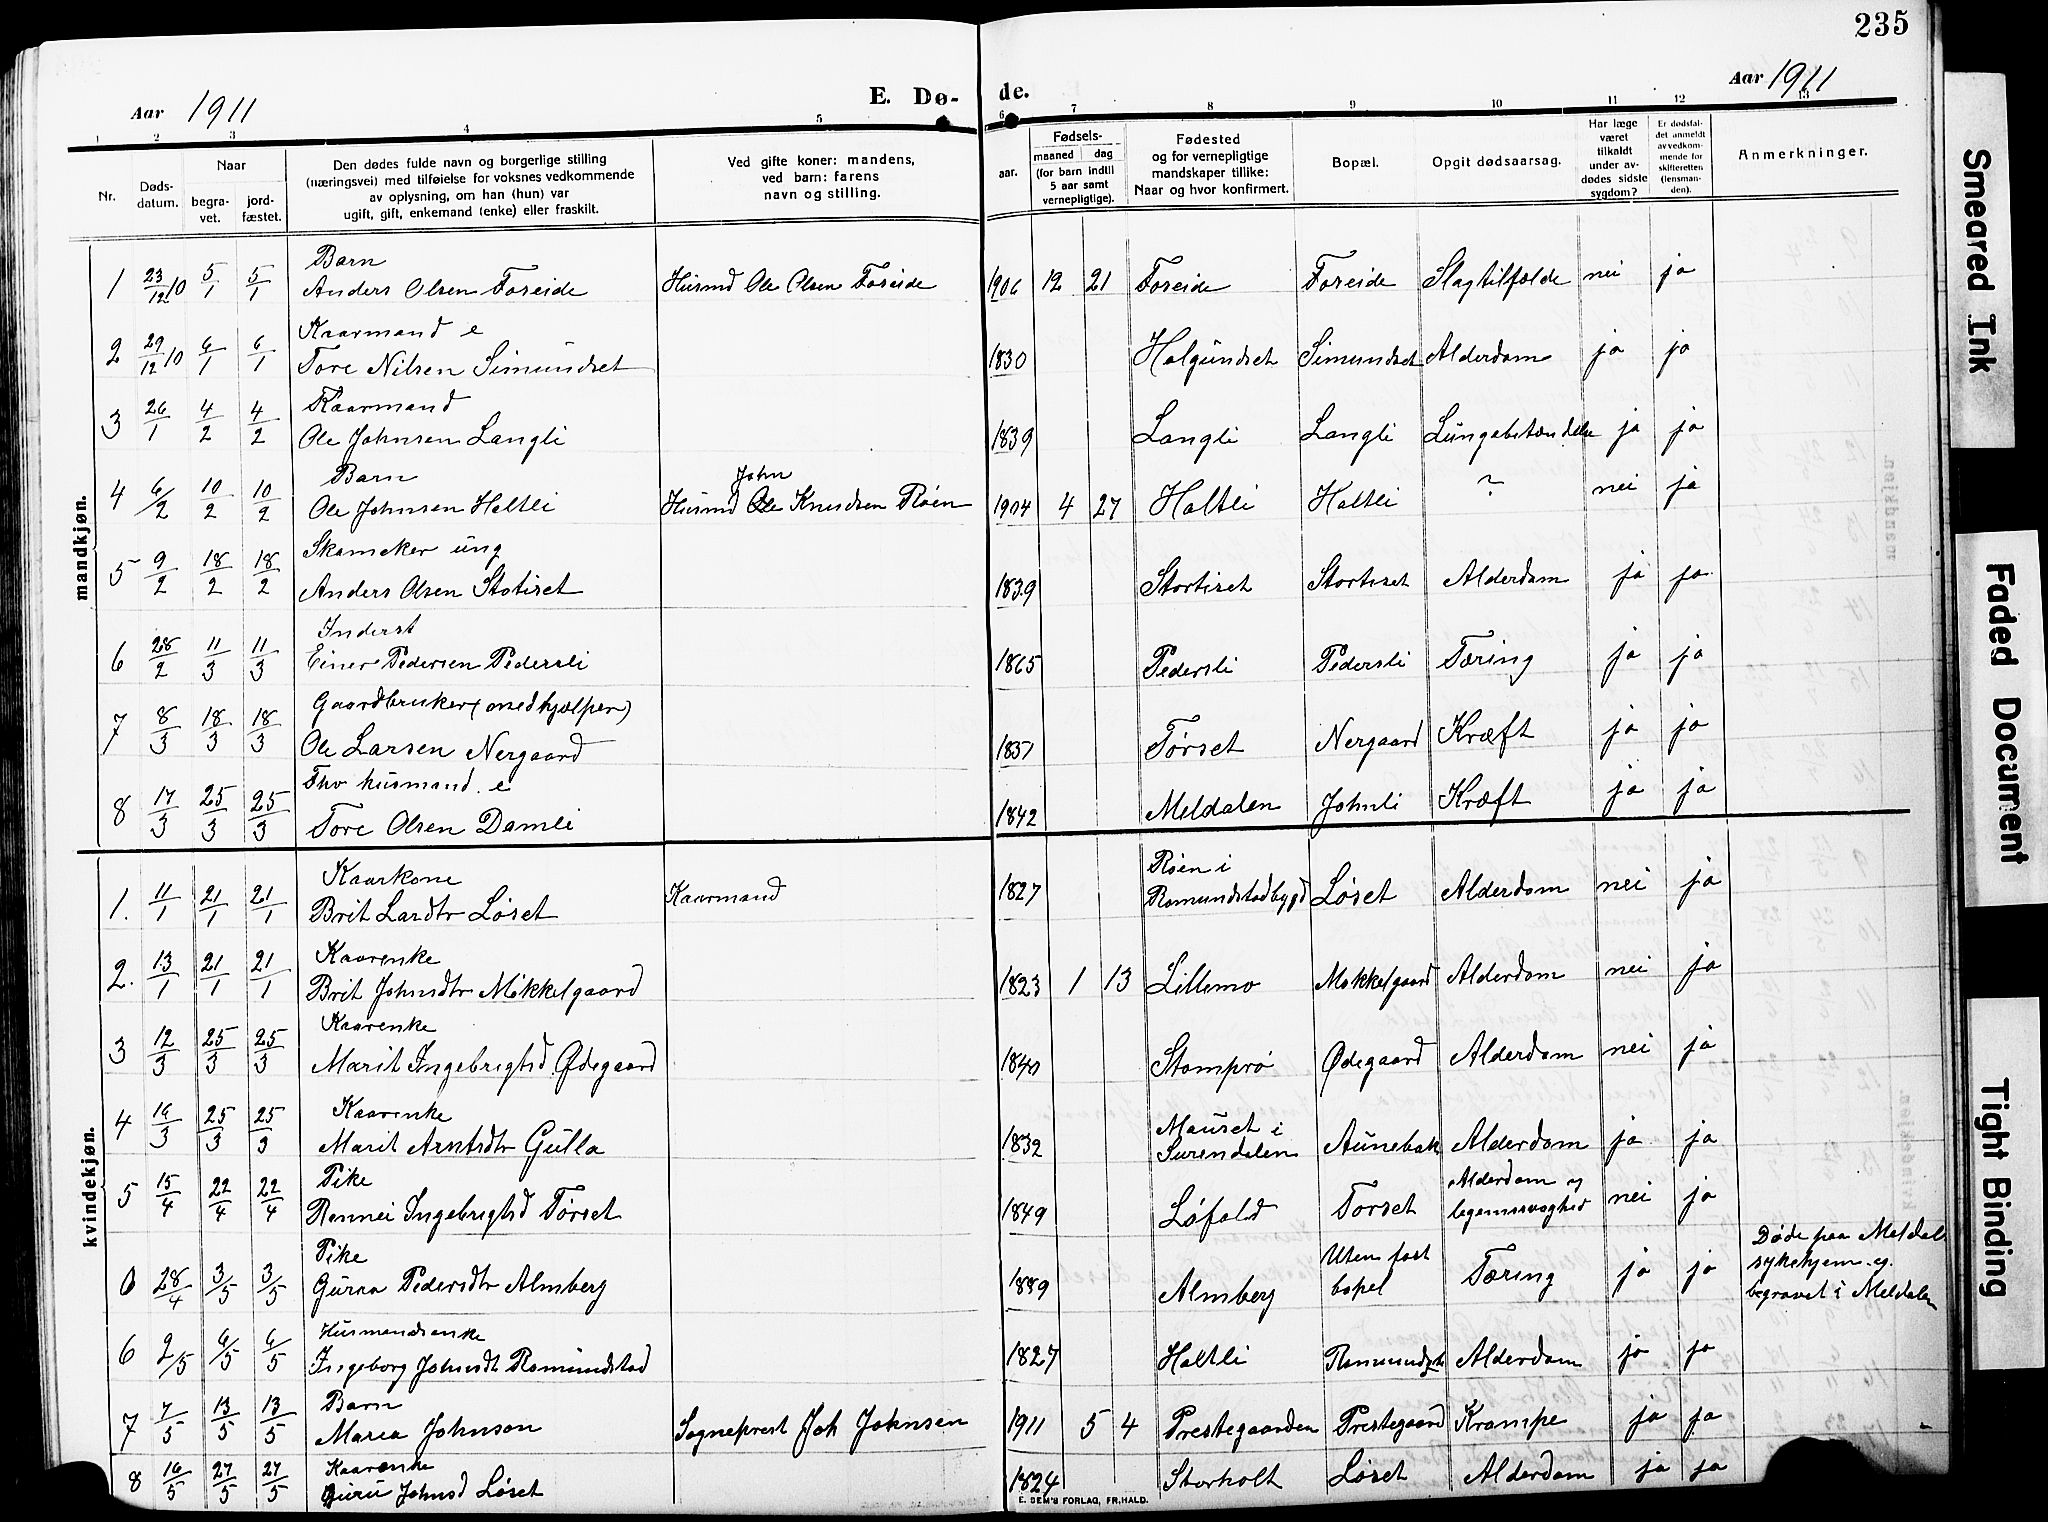 235
Aar 1911
E. Dø-
de.
Aar 1911
1 2 3 4 5
6 7 8 9 10 11 12 13
Nr.
Døds-
datum.
Naar
begra-
vet.
jord-
fæstet.
Den dødes fulde navn og borgerlige stilling
(næringsvei) med tilføielse for voksnes vedkommende
av oplysning, om han (hun) var
ugift, gift, enkemand (enke) eller fraskilt.
Ved gifte koner: mandens,
ved barn: farens
navn og stilling.
aar.
Fødsels-
maaned dag
(for barn indtil
5 aar samt
vernepligtige).
Fødested
og for vernepligtige
mandskaper tillike:
Naar og hvor konfirmert.
Bopæl.
Opgit dødsaarsag.
Har læge
været
tilkaldt
under av-
dødes sidste
sygdom?
Er dødsfal-
det anmeldt
av vedkom-
mende for
skifteretten
(lensman-
den).
Anmerkninger.
mandkjøn.
Barn
1 23/12 10 5/1 5/1 Anders Olsen Foseide Husmd Ole Olsen Foseide 1906 12 21 Foseide Foseide Slagtilfælde nei ja
Kaarmand e
2 29/12 10 6/1 6/1 Tore Nilsen Simundset 1830 Halgundset Simundset Alderdom ja ja
Kaarmand
3 26/1 4/2 4/2 Ole Johnsen Langli 1839 Langli Langli Lungebetændelse ja ja
Barn John
4 6/2 10/2 10/2 Ole Johnsen Holtli Husmd Ole Knudsen Røen 1904 4 27 Holtli Holtli ? nei ja
Skomaker ung
5 9/2 18/2 18/2 Anders Olsen Stotiset 1839 Stortiset Stortiset Alderdom ja ja
Inderst
6 28/2 11/3 11/3 Einer Pedersen Pedersli 1865 Pedersli Pedersli Tæring ja ja
Gaardbruker (medhjælper)
7 8/3 18/3 18/3 Ole Larsen Nergaard 1837 Tørset Nergaard Kræft ja ja
Fhv husmand e
8 17/3 25/3 25/3 Tore Olsen Damli 1842 Meldalen Johnli Kræft ja ja
kvindekjøn.
Kaarkone Røen i
1. 11/1 21/1 21/1 Brit Larsdtr Løset Kaarmand 1827 Romundstadbygd Løset Alderdom nei ja
Kaarenke
2. 13/1 21/1 21/1 Brit Johnsdtr Mikkelgaard 1823 1 13 Lillemo Mikkelgaard Alderdom nei ja
Kaarenke
3 12/3 25/3 25/3 Marit Ingebrigtsd Ødegaard 1840 Stomprø Ødegaard Alderdom nei ja
Kaarenke Mauset i
4 19/3 25/3 25/3 Marit Arntsdtr Gulla 1832 Surendalen Aunebak Alderdom ja ja
Pike Alderdom og
5 15/4 22/4 22/4 Rønnei Ingebrigtsd Tørset 1849 Løfald Torset legemssvaghed nei ja
Pike Uten fast Døde paa Meldal
0 28/4 3/5 3/5 Guroa Pedersdtr Almberg 1889 Almberg bopel Tæring ja ja sykehjem og
begravet i Meldalen
Husmandsenke
6 2/5 6/5 6/5 Ingeborg Johnsdt Romundstad 1827 Holtli Romundst Alderdom ja ja
Barn
7 7/5 13/5 13/5 Marea Johnson Sogneprest Joh Johnsen 1911 5 4 Prestegaarden Prestegaard Krampe ja ja
Kaarenke
8 16/5 27/5 27/5 Guru Johnsd Løset 1824 Storholt Løset Alderdom ja ja
E. SEM'S FORLAG, FR.HALD.
Smeared Ink
Faded Document
Tight Binding